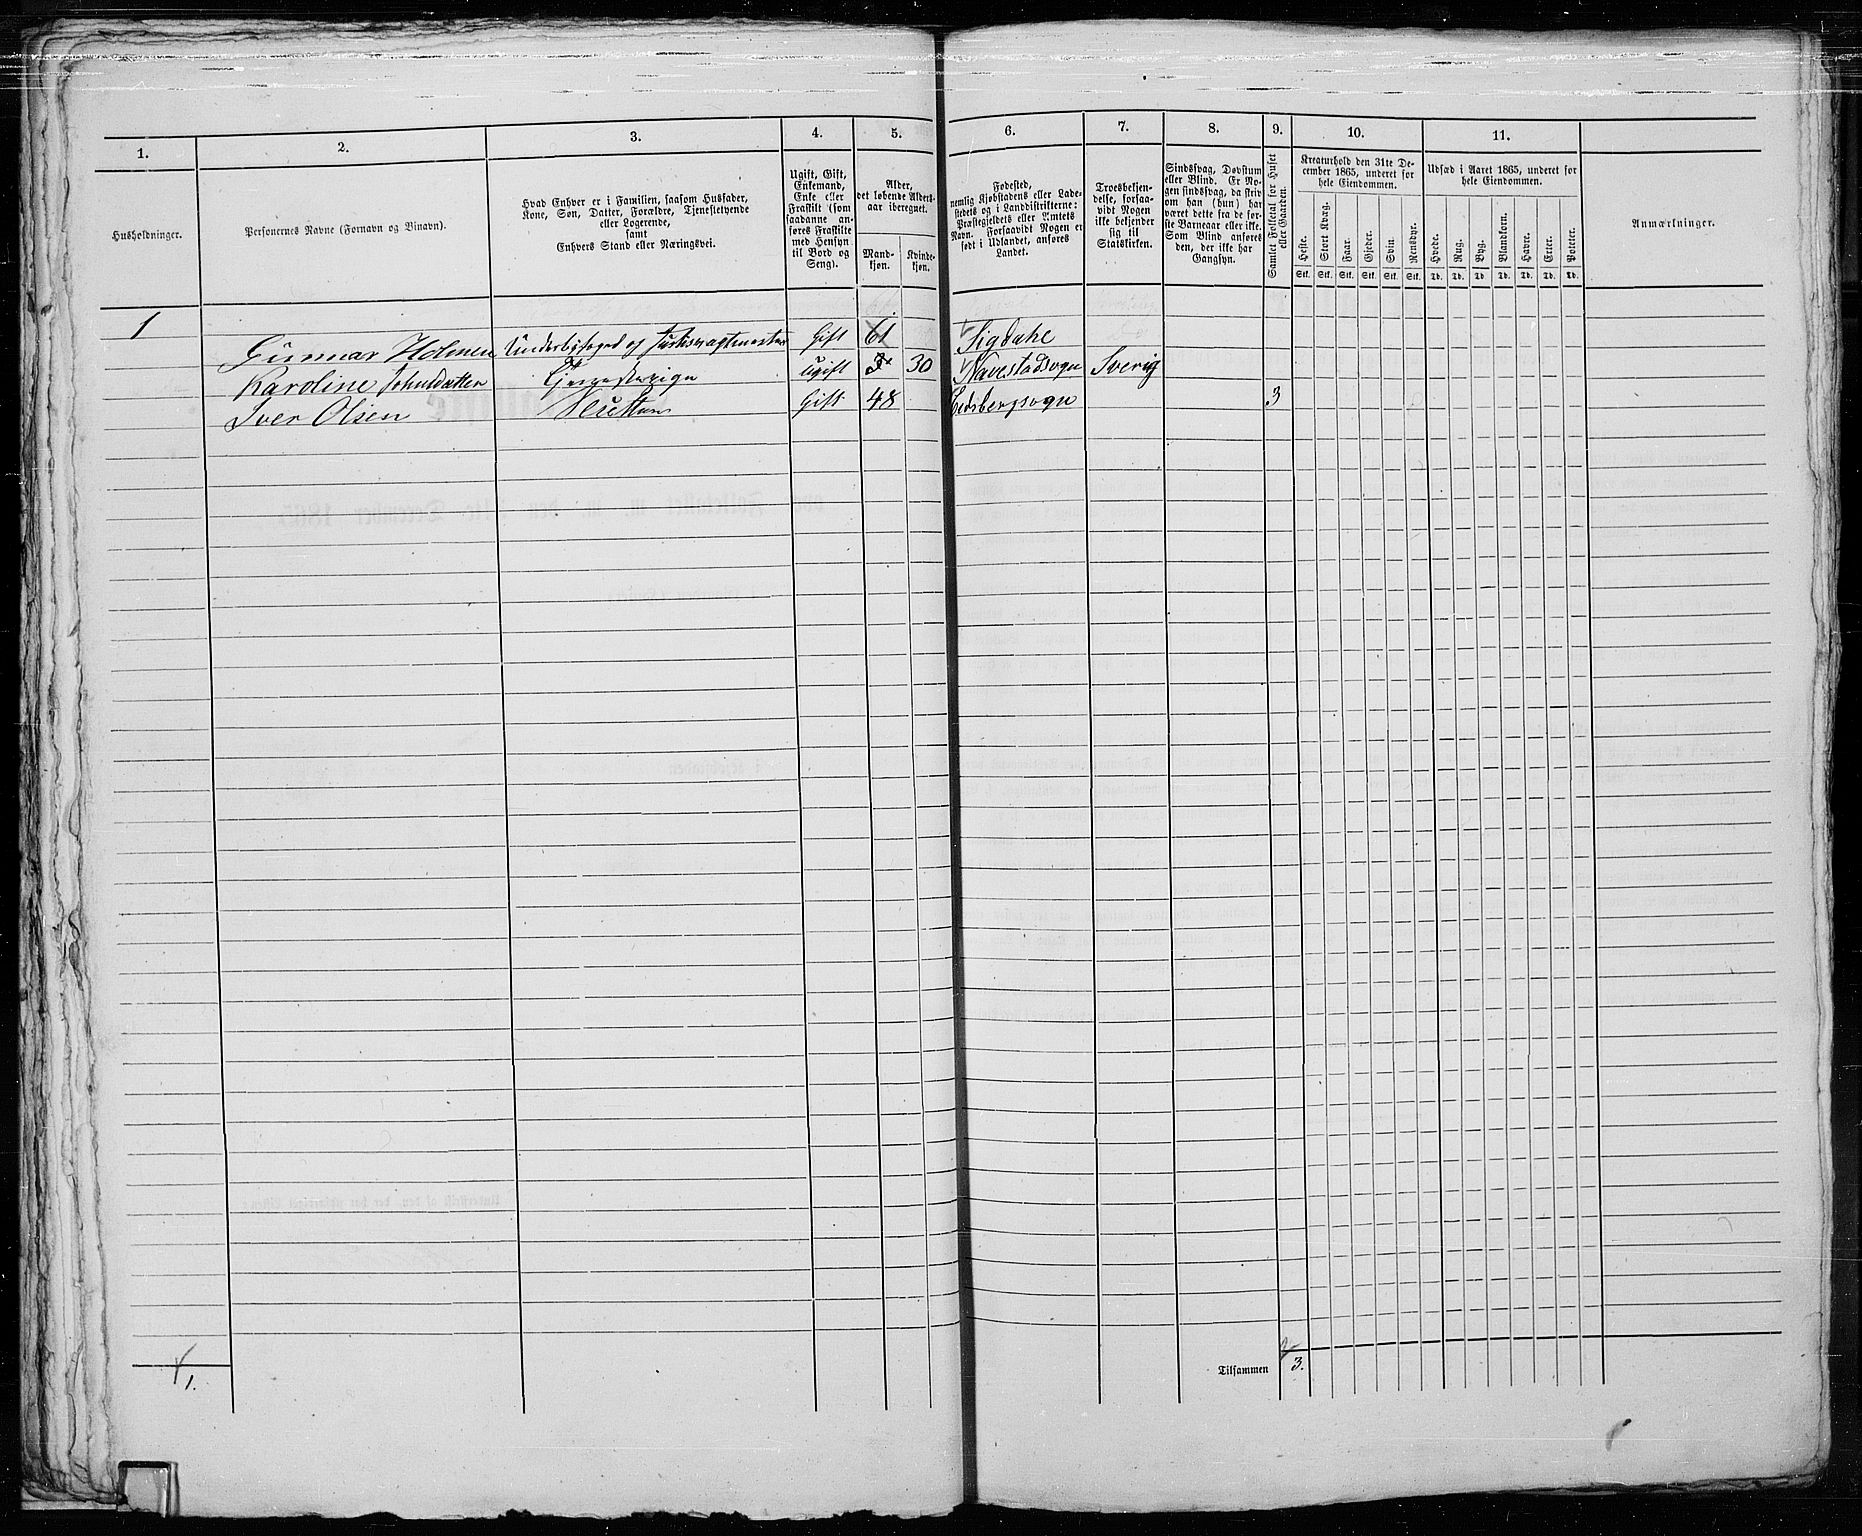 1. 2. 3. 4. 5. 6. 7. 8. 9. 10. 11.
Husholdninger.
Personernes Navne (Fornavn og Binavn).
Hvad Enhver er i Familien, saasom Husfader,
Kone, Søn, Datter, Forældre, Tjenestetyende
eller Logerende,
samt
Enhvers Stand eller Næringsvei.
Ugift, Gift,
Enkemand,
Enke eller
Fraskilt (som
saadanne an-
føres Fraskilte
med Hensyn
til Bord og
Seng).
Alder,
det løbende Alders-
aar iberegnet.
Mand-
kjøn.
Kvinde-
kjøn.
Fødested,
nemlig Kjøbstadens eller Lade-
stedets og i Landdistrikterne:
Præstegjeldets eller Amtets
Navn. Forsaavidt Nogen er
født i Udlandet, anføres
Landet.
Troesbekjen-
delse, forsaa-
vidt Nogen
ikke bekjender
sig til
Statskirken.
Sindssvag, Døvstum
eller Blind. Er No-
gen sindssvag, da skriv
om han (hun) har
været dette fra de før-
ste Barneaar eller ikke.
Som Blind anføres
den, der ikke har
Gangsyn.
Samlet Folketal for Huset
eller Gaarden.
Kreaturhold den 31te De-
cember 1865, underet for
hele Eiendommen.
Heste. Stort Kvæg. Faar. Gjeder. Svin. Rensdyr.
Stk. Stk. Stk. Stk. Stk. Stk.
Udsæd i Aaret 1865, underet for
hele Eiendommen.
Hvede. Rug. Byg. Blandkorn. Havre. Erter. Poteter.
Td. Td. Td. Td. Td. Td. Td.
Anmærkninger.
1 Gunnar Holmen Gift 61 Sigdahe
Karoline Johnsdatter ugift 30 Navestadsogn Sverig
Iver Olsen Gift 48 Eidsbergsogn 3
1. Tilsammen 3.